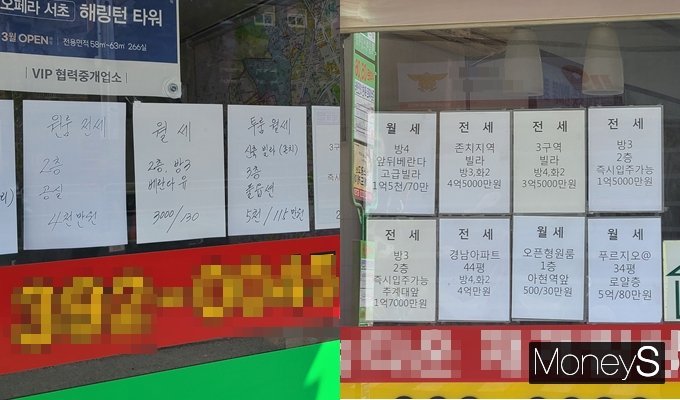 오페라 서초 해링턴 타워
3월 OPEN
전용면적 58㎡~63㎡ 266실
VIP 협력중개업소
원룸 전세
2층
공실
4천만원
월세
2층, 방3
베란다 유
3000/130
투룸 월세
신축 빌라(존치)
3층
풀옵션
5천/115만원
3구
월세
방4
앞뒤베란다
고급빌라
1억5천/70만
전세
존치지역
빌라
방3,화2
4억5000만원
전세
3구역
빌라
방3,화2
3억5000만원
전세
방3
2층
즉시입주가능
1억5000만원
전세
방3
2층
즉시입주가능
추계대앞
1억7000만원
전세
경남아파트
44평
방4,화2
4억만원
월세
오픈형원룸
1층
아현역앞
500/30만원
월세
푸르지오@
34평
로얄층
5억/80만원
MoneyS